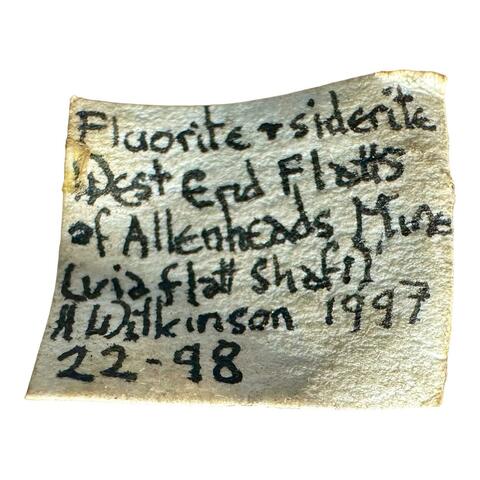 Fluorite + siderite
West End Flatts
of Allenheads Mine
(via flatt shaft)
H Wilkinson 1997
22-98